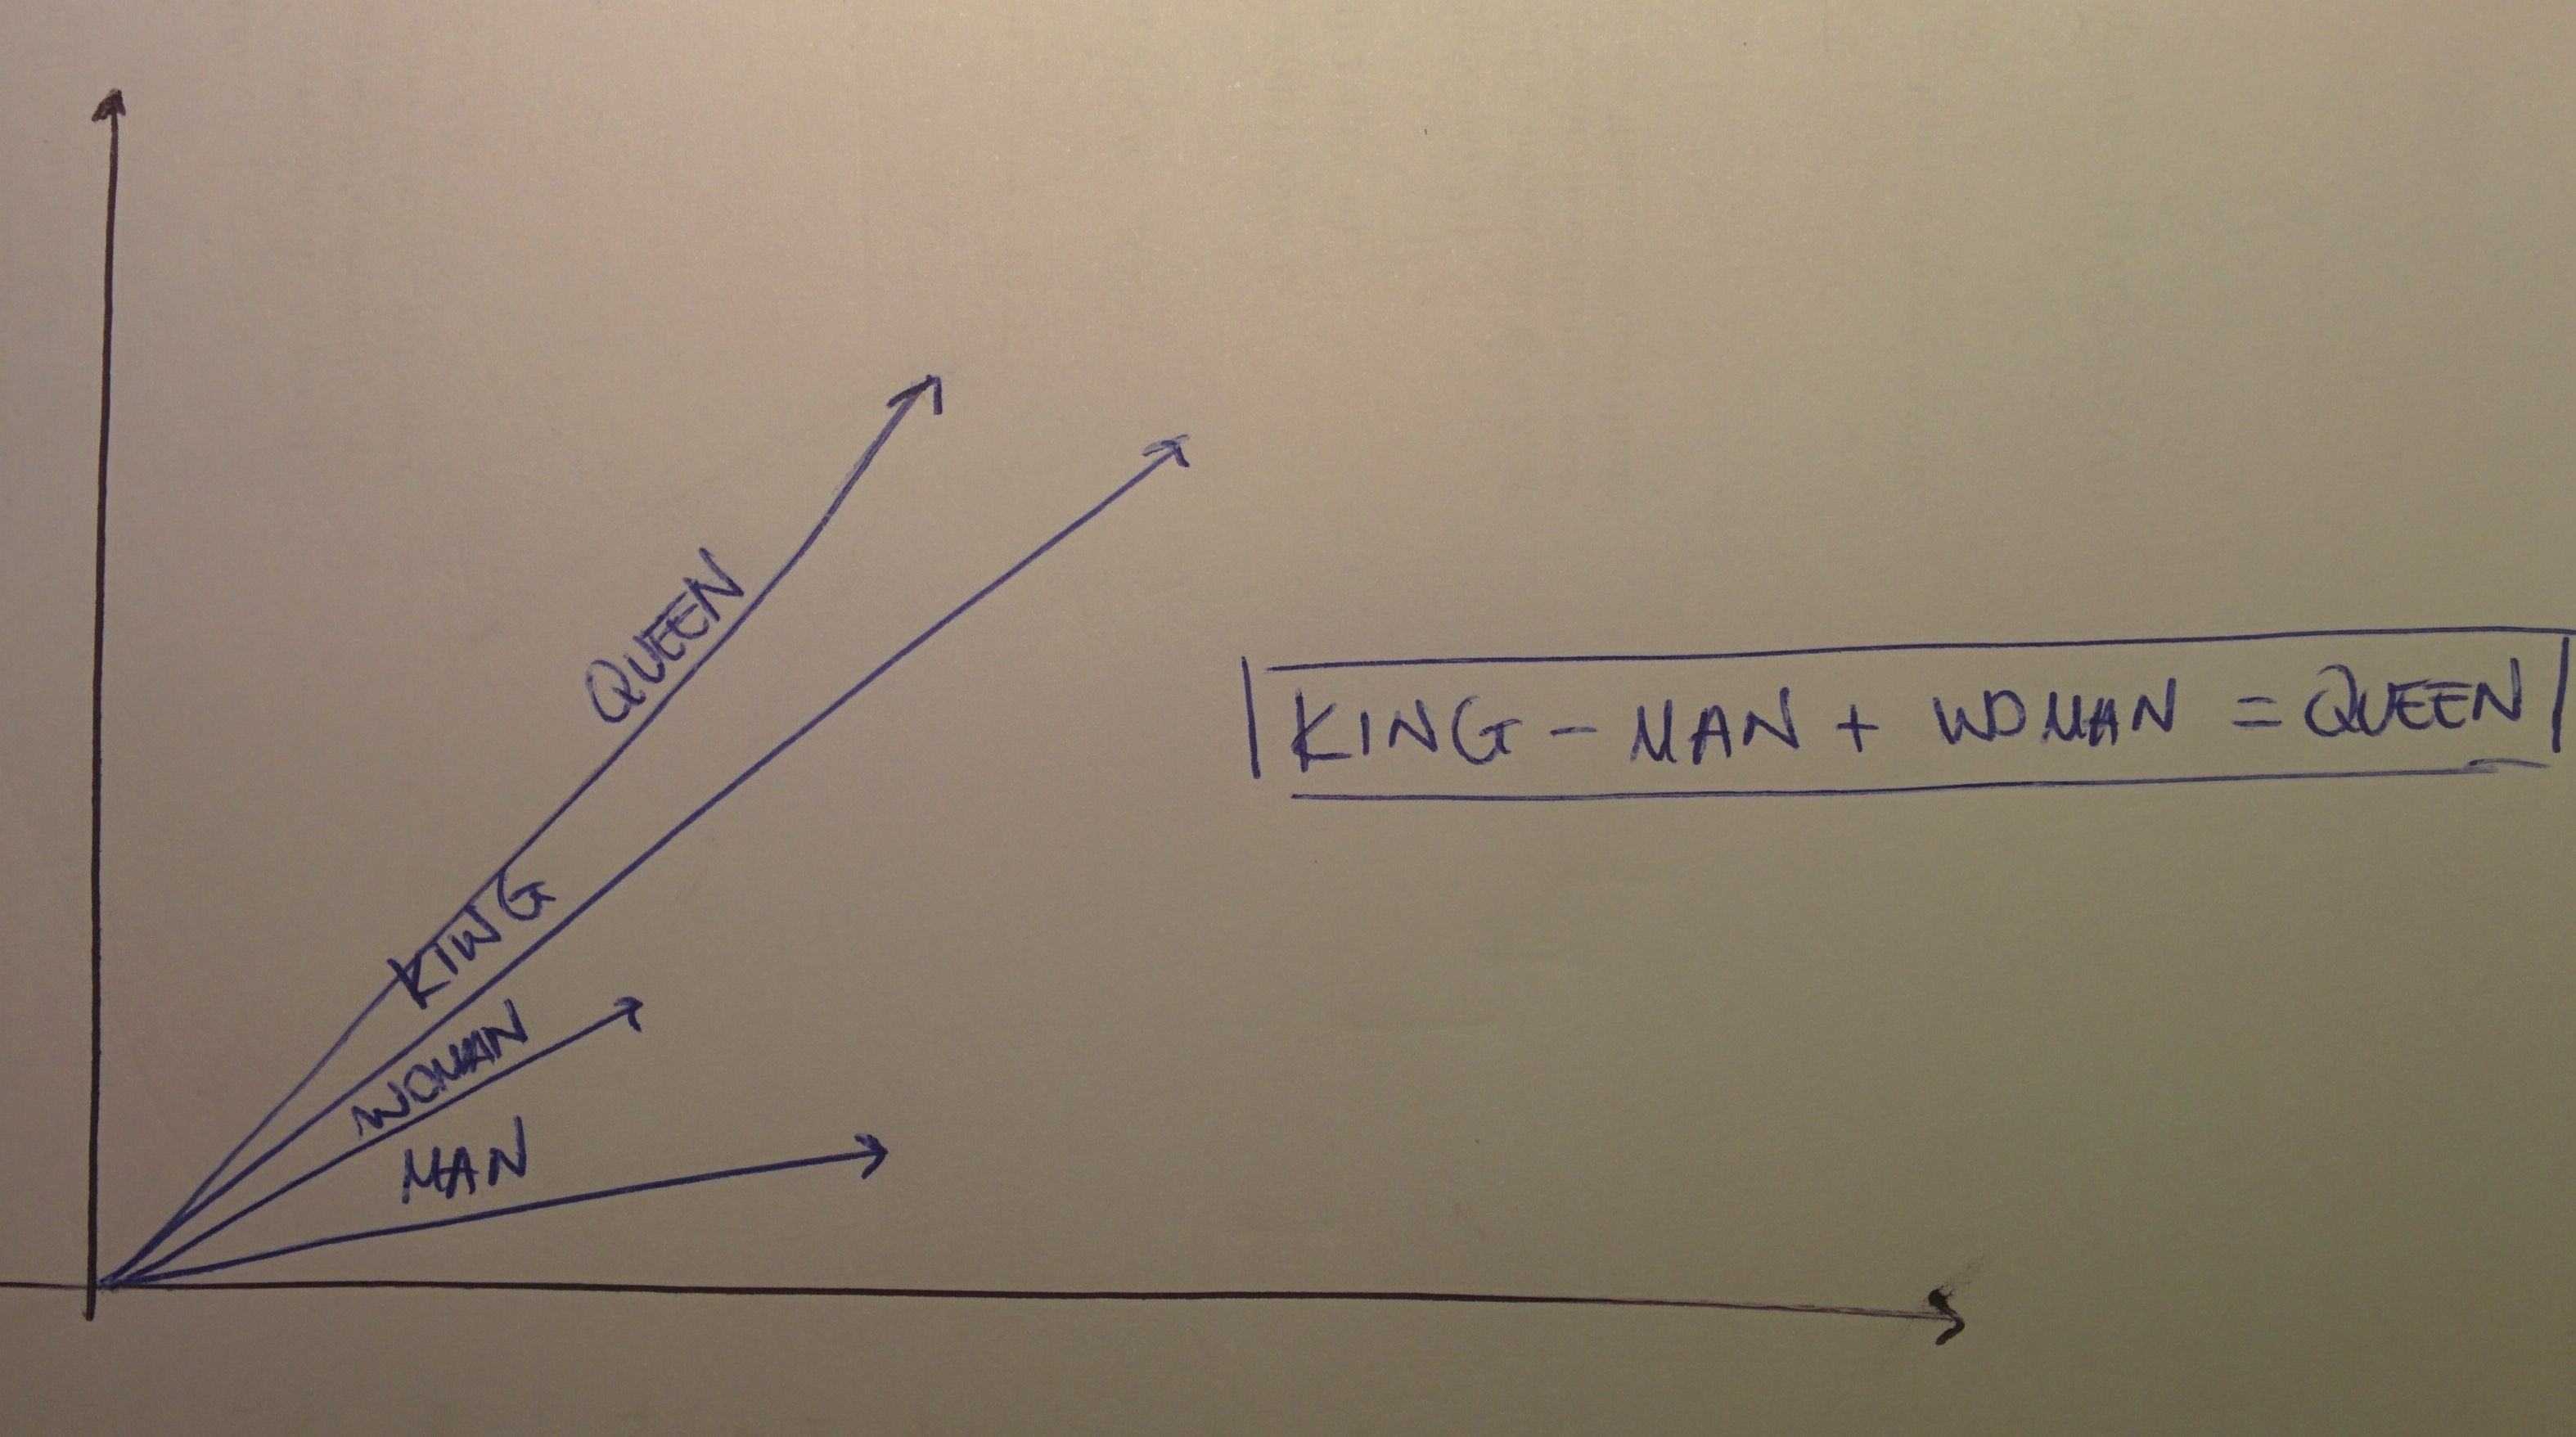 QUEEN
KING
WOMAN
MAN
KING - MAN + WOMAN = QUEEN